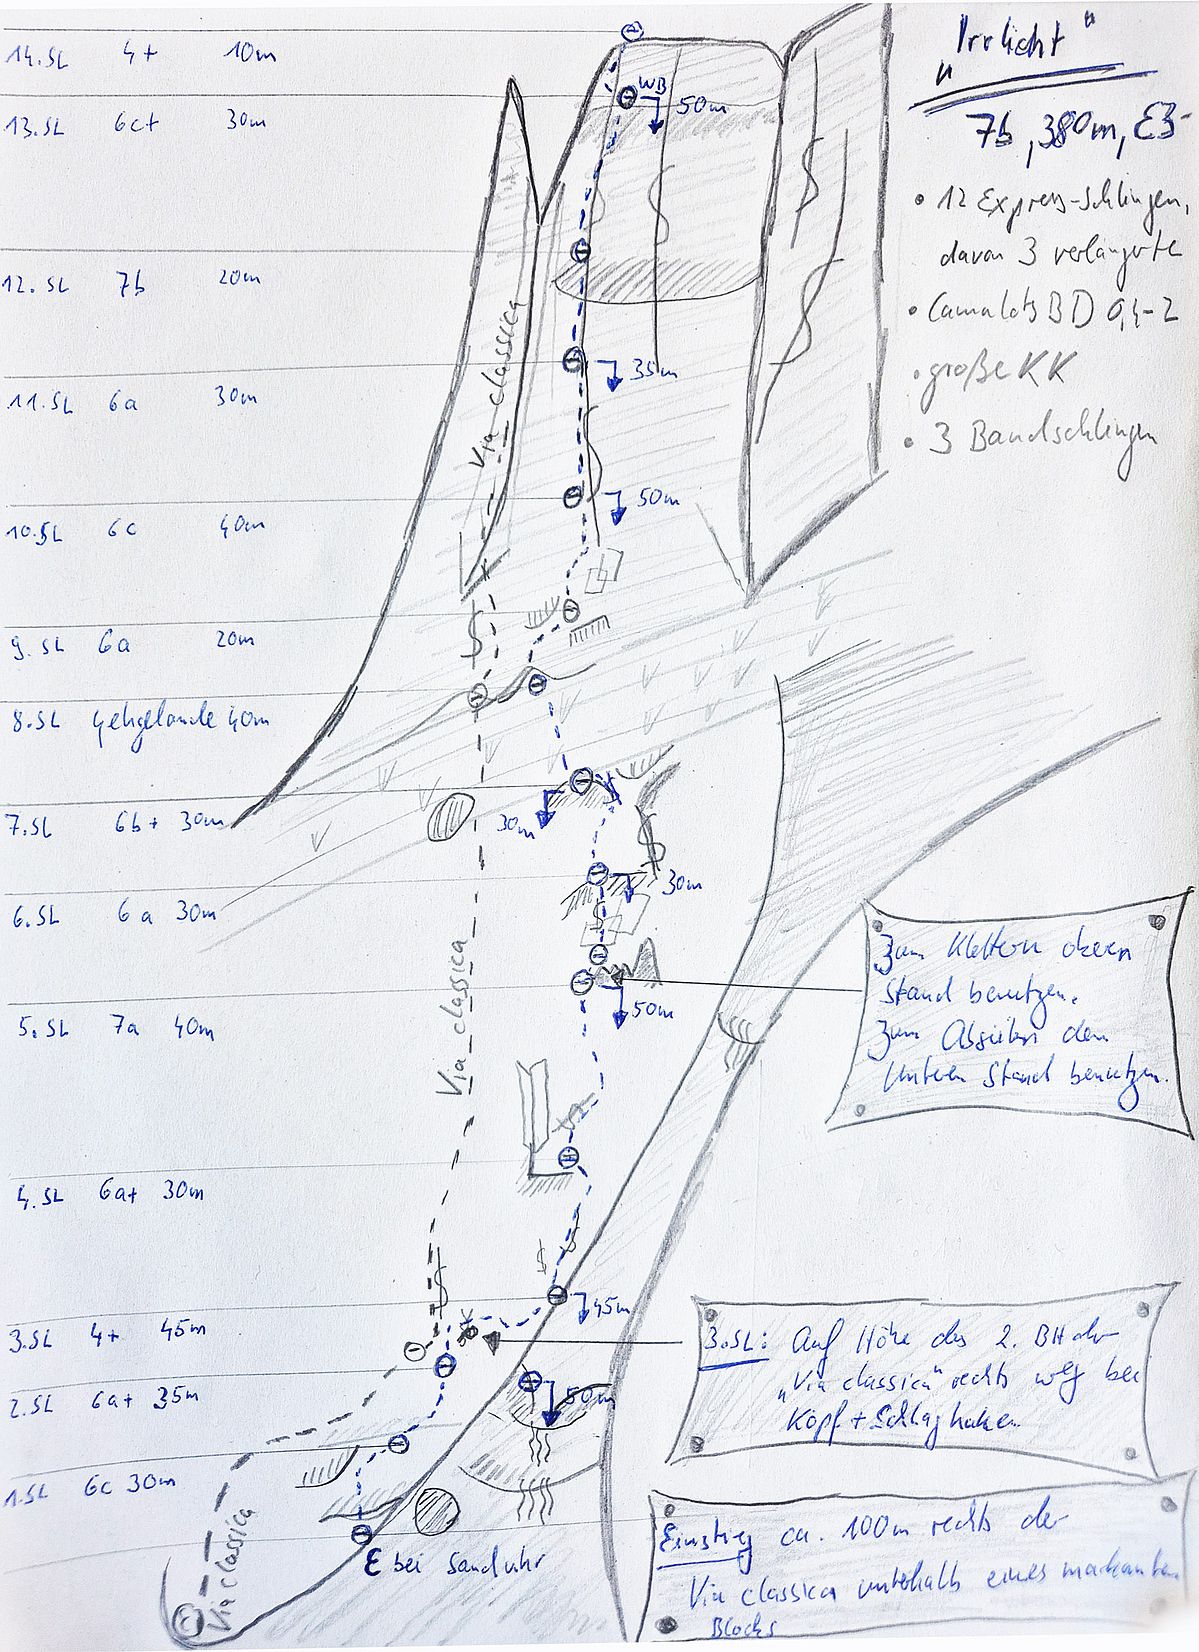 "Irrlicht"
7b, 380m, E3-
• 12 Express-Schlingen,
davon 3 verlängerte
• Camalots BD 0,4-2
• große KK
• 3 Bandschlingen
14.SL 4+ 10m
13.SL 6c+ 30m
12.SL 7b 20m
11.SL 6a 30m
10.SL 6c 40m
9.SL 6a 20m
8.SL Gehgelände 40m
7.SL 6b+ 30m
6.SL 6a 30m
5.SL 7a 40m
4.SL 6a+ 30m
3.SL 4+ 45m
2.SL 6a+ 35m
1.SL 6c 30m
WB
50m
35m
50m
30m
30m
50m
45m
50m
Via classica
Via classica
Via classica
E bei Sanduhr
Zum Klettern oberen
Stand benutzen.
Zum Abseilen den
unteren Stand benutzen.
3.SL: Auf Höhe des 2. BH der
"Via classica" rechts weg bei
Kopf + Schlaghaken
Einstieg ca. 100m rechts der
Via classica unterhalb eines markanten
Blocks